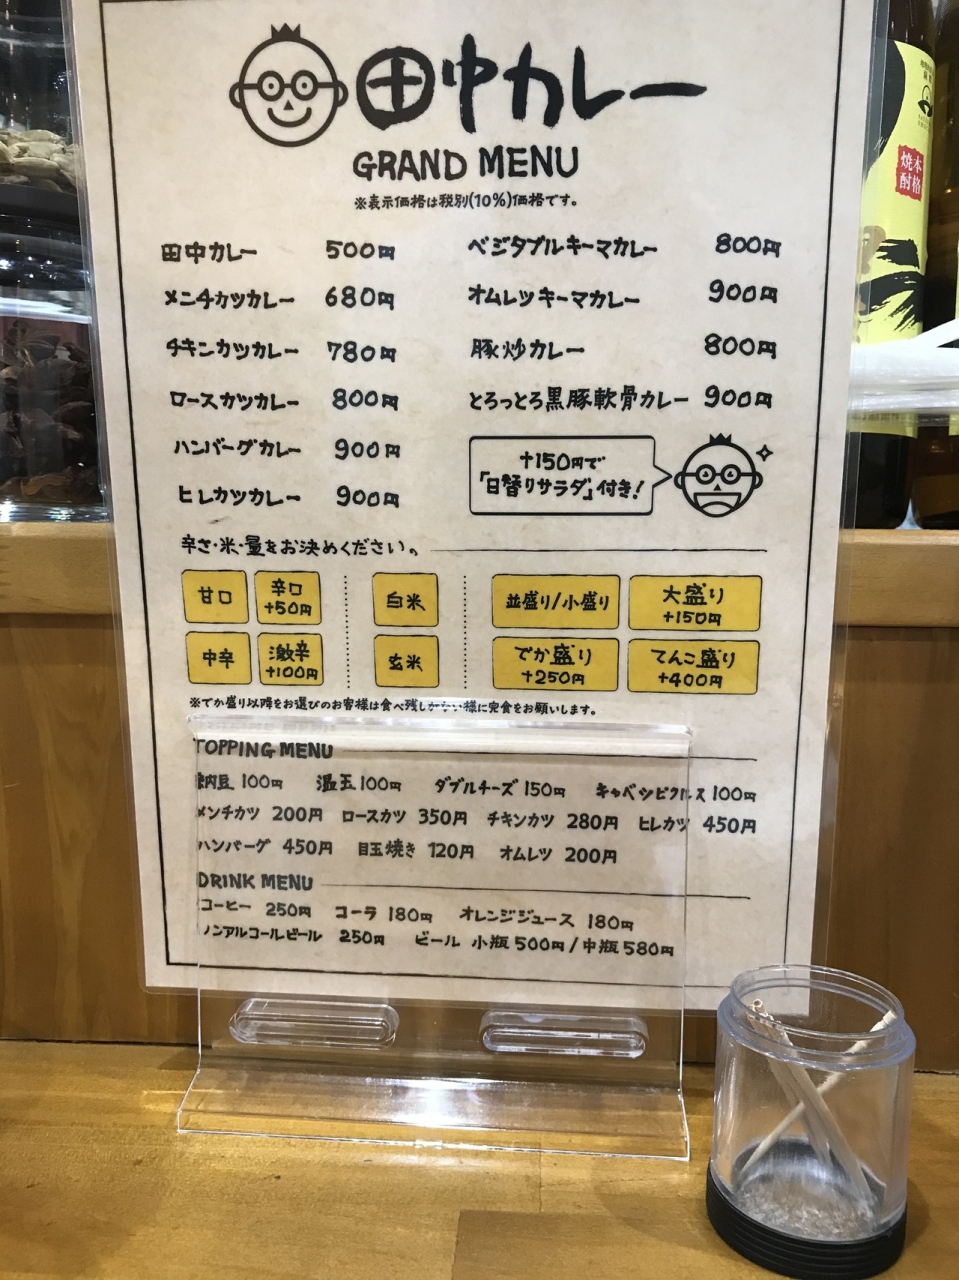 田中カレー
GRAND MENU
※表示価格は税別(10%)価格です。
田中カレー 500円
メンチカツカレー 680円
チキンカツカレー 780円
ロースカツカレー 800円
ハンバーグカレー 900円
ヒレカツカレー 900円
ベジタブルキーマカレー 800円
オムレツキーマカレー 900円
豚炒カレー 800円
とろっとろ黒豚軟骨カレー 900円
+150円で
「日替りサラダ」付き!
辛さ・米・量をお決めください。
甘口
辛口
+50円
中辛
激辛
+100円
白米
玄米
並盛り/小盛り
大盛り
+150円
でか盛り
+250円
てんこ盛り
+400円
※でか盛り以降をお選びのお客様は食べ残しがない様に完食をお願いします。
TOPPING MENU
納豆 100円 温玉 100円 ダブルチーズ 150円 キャベツピクルス 100円
メンチカツ 200円 ロースカツ 350円 チキンカツ 280円 ヒレカツ 450円
ハンバーグ 450円 目玉焼き 120円 オムレツ 200円
DRINK MENU
コーヒー 250円 コーラ 180円 オレンジジュース 180円
ノンアルコールビール 250円 ビール 小瓶 500円/中瓶 580円
本格
焼酎